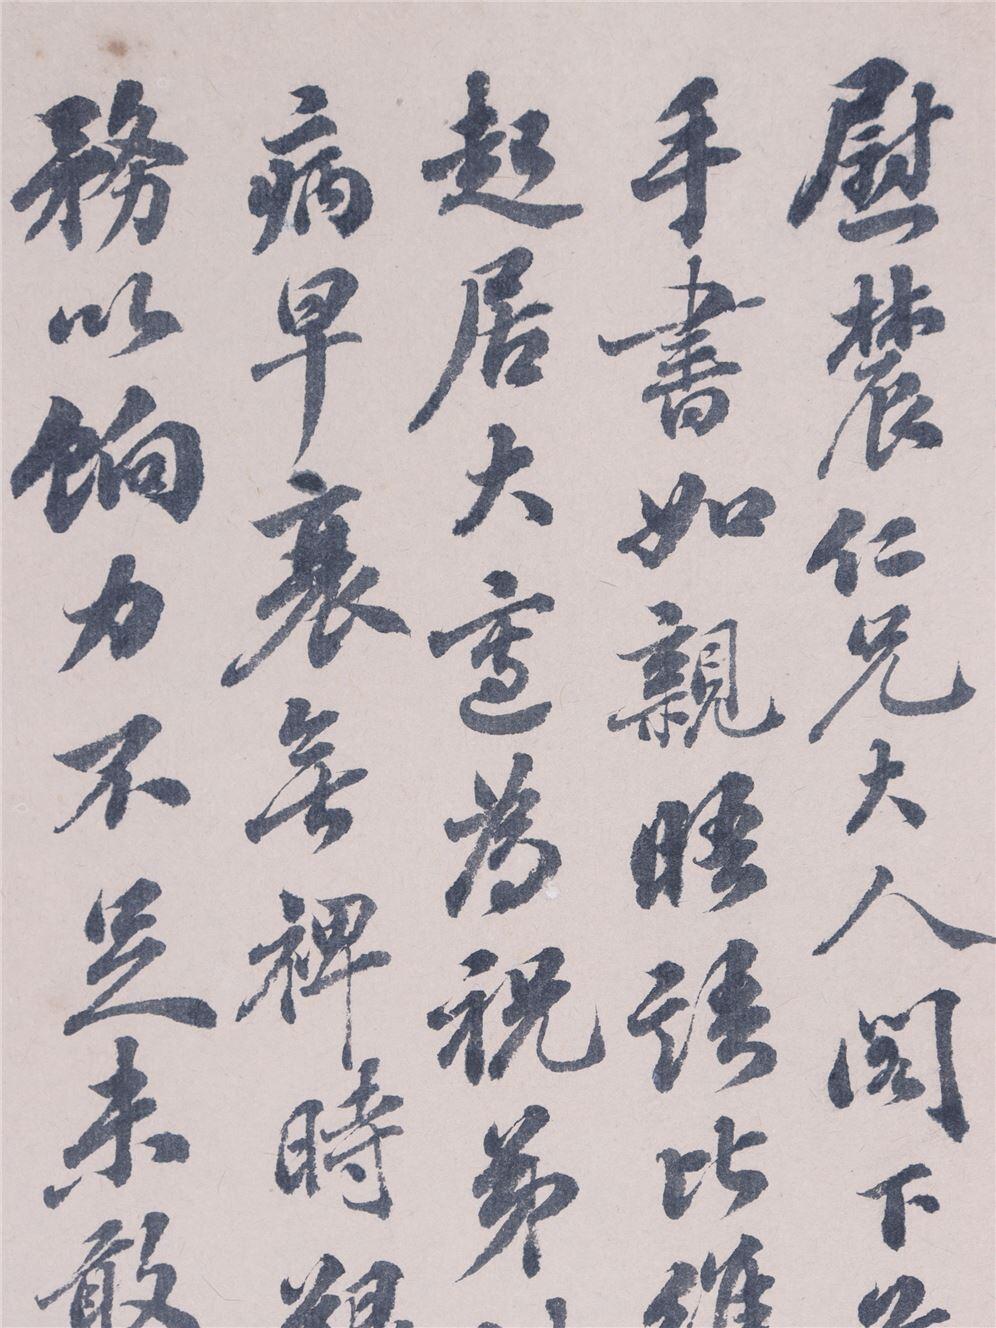 慰農仁兄大人閣下
手書如親晤語比維
起居大適為祝弟
病早衰無裨時艱
務以餉力不足未敢